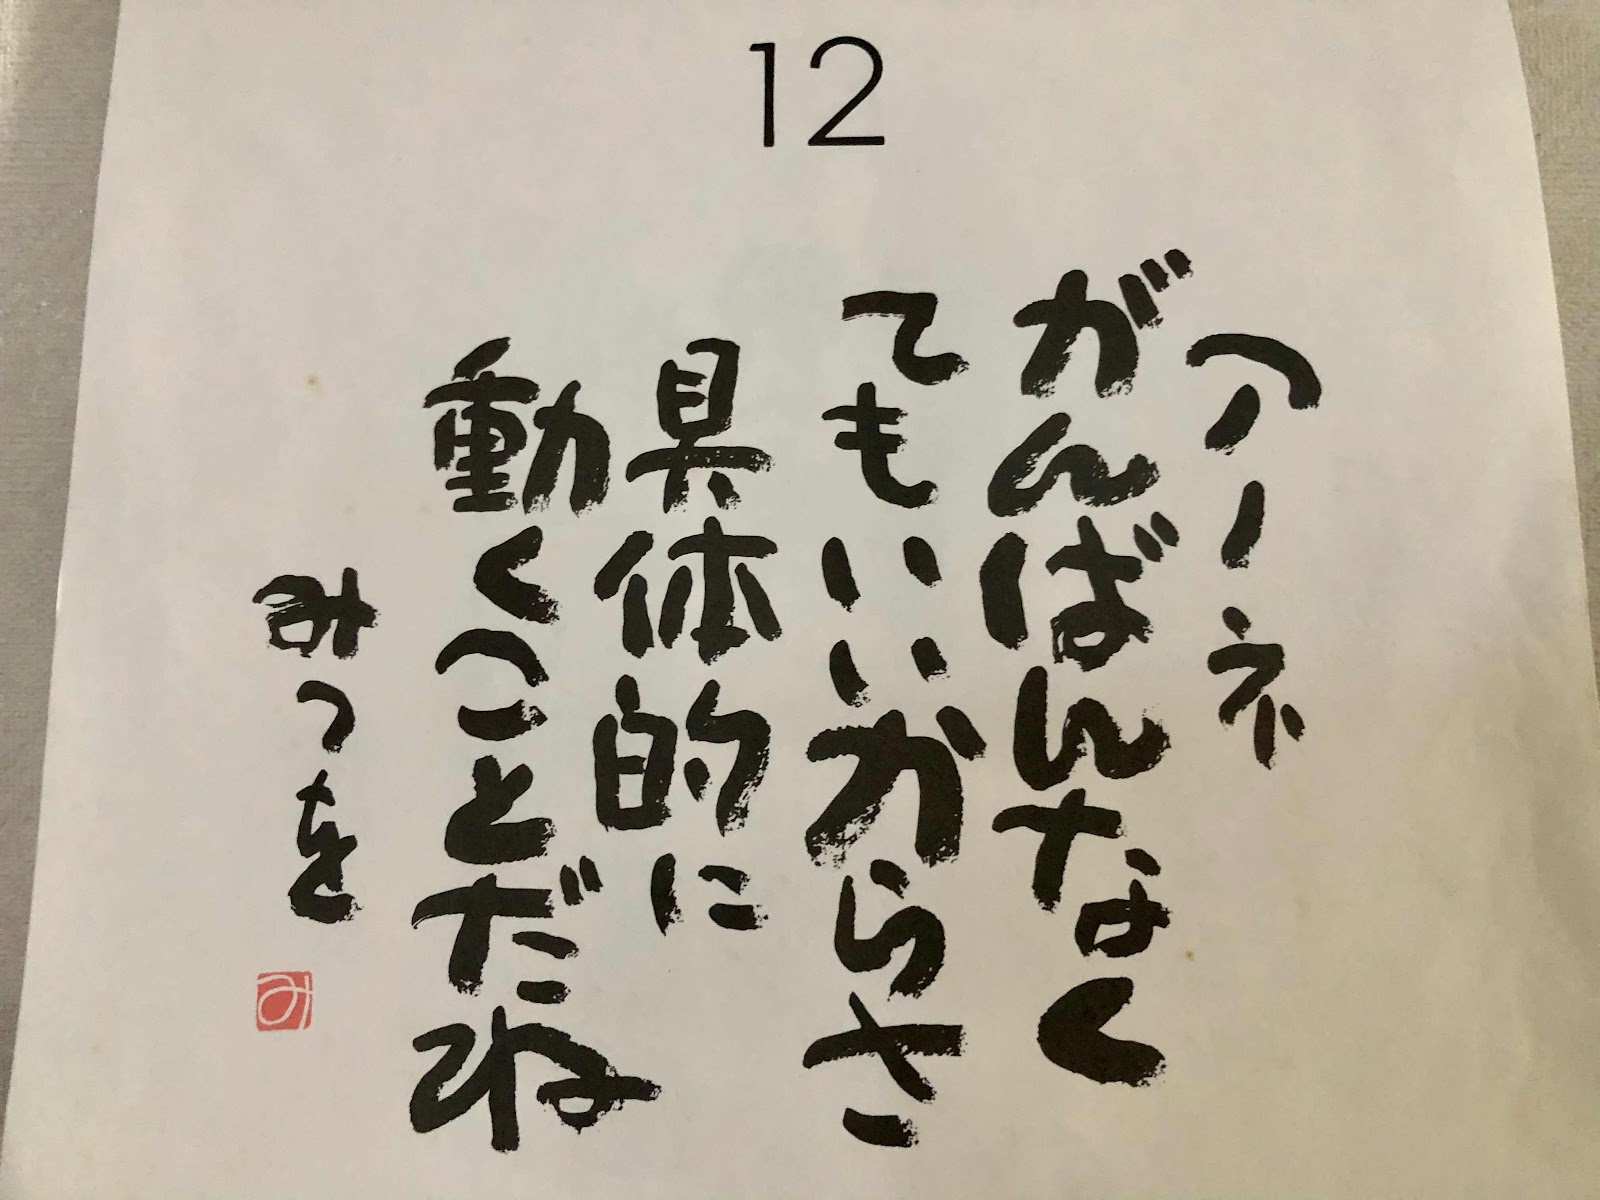 12
アノネ
がんばんなく
てもいいからさ
具体的に
動くことだね
みつを
み